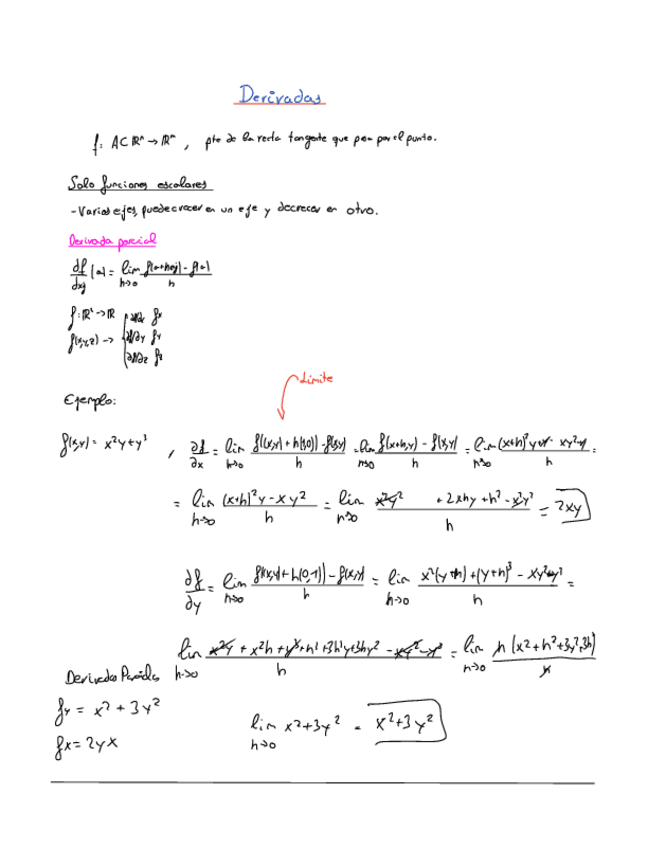 Derivadas
f: A⊂ℝⁿ→ℝᵐ, pte de la recta tangente que pasa por el punto.
Solo funciones escolares
- Varios ejes, puede crecer en un eje y decrecer en otro.
Derivada parcial
df/dxj (a) = lim h→0 f(a+hej) - f(a) / h
f(x,y,z) → ∂f/∂x fx
∂f/∂y fy
∂f/∂z fz
Límite
Ejemplo:
f(x,y) = x²y+y³, ∂f/∂x = lim h→0 f((x,y)+h(1,0)) - f(x,y) / h = lim h→0 f(x+h,y) - f(x,y) / h =
= lim h→0 (x+h)²y - xy² / h = lim h→0 + 2xhy + h² - / h = 2xy
∂f/∂y = lim h→0 f((x,y)+h(0,1)) - f(x,y) / h = lim h→0 x²(y+h)+(y+h)³ - / h =
lim h→0 x²y + x²h + y³ + / h = lim h→0 / h
Derivadas Parciales
fy = x² + 3y²
fx = 2yx
lim h→0 x²+3y² = x²+3y²